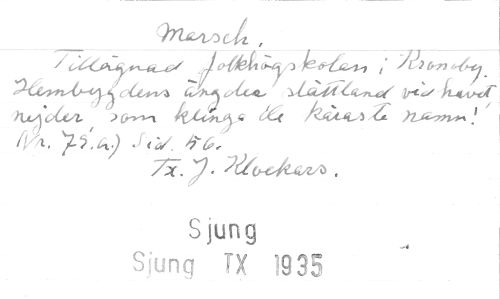 Marsch.
Tillägnad folkhögskolan i Kronoby.
Hembygdens ängder slättland vid havet,
nejder som klinga de käraste namn!
Nr. 75.a.) Sid. 56.
Tx. J. Klockars.
Sjung
Sjung TX 1935